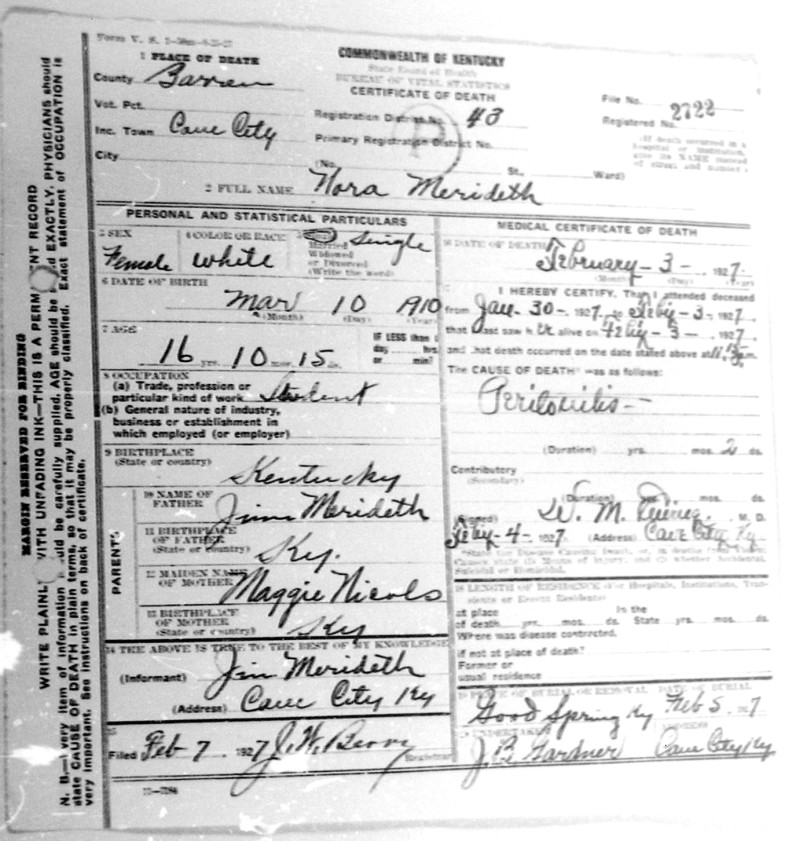 Form V. S.
1 PLACE OF DEATH
County Barren
Vot. Pct.
Inc. Town Cave City
City
COMMONWEALTH OF KENTUCKY
State Board of Health
BUREAU OF VITAL STATISTICS
CERTIFICATE OF DEATH
Registration District No. 43
Primary Registration District No.
(No. St., Ward)
File No. 2722
Registered No.
(If death occurred in a
hospital or institution,
give its NAME instead
of street and number.)
P
2 FULL NAME Nora Merideth
PERSONAL AND STATISTICAL PARTICULARS
3 SEX
Female
4 COLOR OR RACE
white
Married
Widowed
or Divorced
(Write the word)
Single
6 DATE OF BIRTH
Mar 10 1910
(Month) (Day) (Year)
7 AGE
16 yrs. 10 mos. 15 ds.
IF LESS than 1
day hrs.
or min?
8 OCCUPATION
(a) Trade, profession or
particular kind of work Student
(b) General nature of industry,
business or establishment in
which employed (or employer)
9 BIRTHPLACE
(State or country)
Kentucky
PARENTS
10 NAME OF
FATHER
Jim Merideth
11 BIRTHPLACE
OF FATHER
(State or country)
Ky.
12 MAIDEN NAME
OF MOTHER
Maggie Nicols
13 BIRTHPLACE
OF MOTHER
(State or country)
Ky
14 THE ABOVE IS TRUE TO THE BEST OF MY KNOWLEDGE
(Informant) Jim Merideth
(Address) Cave City Ky
15
Filed Feb 7 1927 J. W. Berry
Registrar
MEDICAL CERTIFICATE OF DEATH
16 DATE OF DEATH
February - 3 - 1927.
(Month) (Day) (Year)
I HEREBY CERTIFY, That I attended deceased
from Jan - 30 - 1927, to Feby - 3 - 1927
that I last saw her alive on Feby - 3 - 1927.
and that death occurred on the date stated above at m.
The CAUSE OF DEATH was as follows:
Peritonitis -
(Duration) yrs. mos. 2 ds.
Contributory
(Secondary)
(Duration) yrs. mos. ds.
(Signed) W. M. M. D.
Feby - 4 - 1927 (Address) Cave City Ky
*State the Disease Causing Death, or, in deaths from Violent
Causes state (1) Means of Injury; and (2) whether Accidental,
Suicidal or Homicidal.
18 LENGTH OF RESIDENCE (For Hospitals, Institutions, Tran-
sients or Recent Residents)
at place In the
of death yrs. mos. ds. State yrs. mos. ds.
Where was disease contracted,
if not at place of death?
Former or
usual residence
19 PLACE OF BURIAL OR REMOVAL DATE OF BURIAL
Good Spring Ky Feb 5 1927
20 UNDERTAKER ADDRESS
J. B. Gardner Cave City Ky
MARGIN RESERVED FOR BINDING
WRITE PLAINLY WITH UNFADING INK—THIS IS A PERMANENT RECORD
N. B.—Every item of information should be carefully supplied. AGE should be stated EXACTLY. PHYSICIANS should
state CAUSE OF DEATH in plain terms, so that it may be properly classified. Exact statement of OCCUPATION is
very important. See instructions on back of certificate.